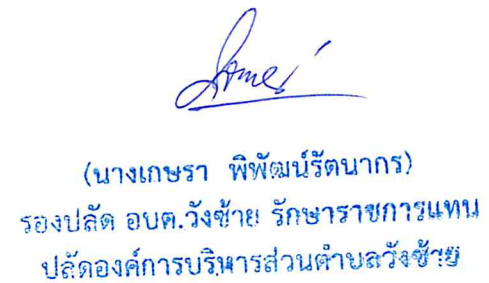 (นางเกษรา พิพัฒน์รัตนากร)
รองปลัด อบต.วังซ้าย รักษาราชการแทน
ปลัดองค์การบริหารส่วนตำบลวังซ้าย